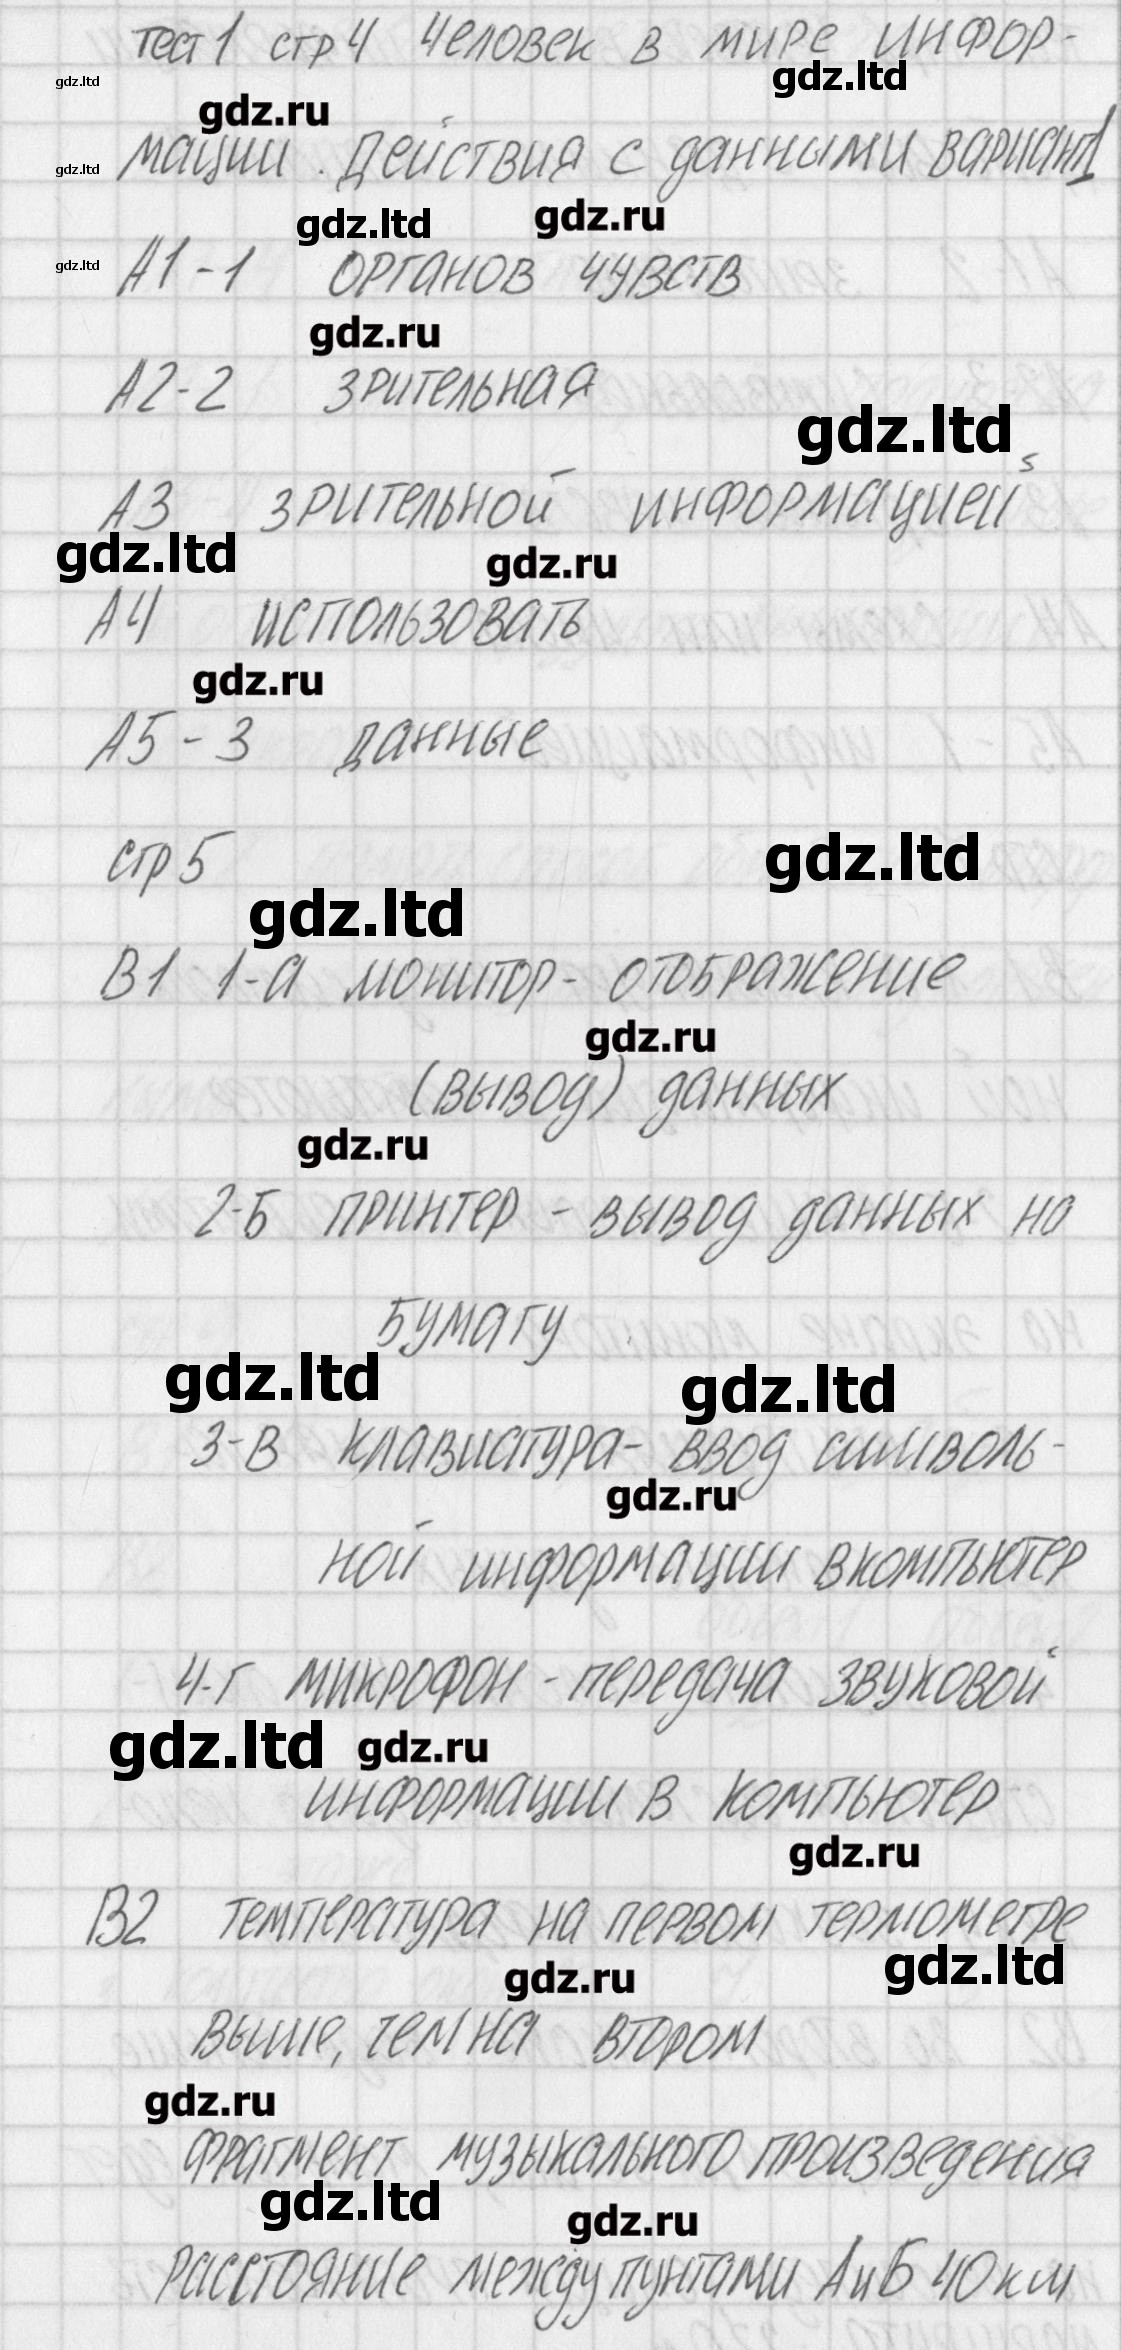 тест 1 стр 4 Человек в мире инфор-
gdz.ltd gdz.ltd
gdz.ru
мации. Действия с данными вариант 1
gdz.ltd
gdz.ltd gdz.ru
А1-1 органов чувств
gdz.ltd
gdz.ru
А2-2 зрительная
gdz.ltd
А3 зрительной информацией
gdz.ltd gdz.ru
А4 использовать
gdz.ru
А5-3 данные
стр 5
gdz.ltd
gdz.ltd
В1 1-а монитор- отображение
gdz.ru
(вывод) данных
gdz.ru
2-Б принтер - вывод данных на
бумагу
gdz.ltd gdz.ltd
3-В клавиатура- ввод символь-
gdz.ru
ной информации в компьютер
4-г микрофон - передача звуковой
gdz.ltd gdz.ru
информации в компьютер
gdz.ru
В2 температура на первом термометре
gdz.ru gdz.ltd
выше, чем на втором
gdz.ru
фрагмент музыкального произведения
gdz.ltd gdz.ru
расстояние между пунтами А и Б 40 км